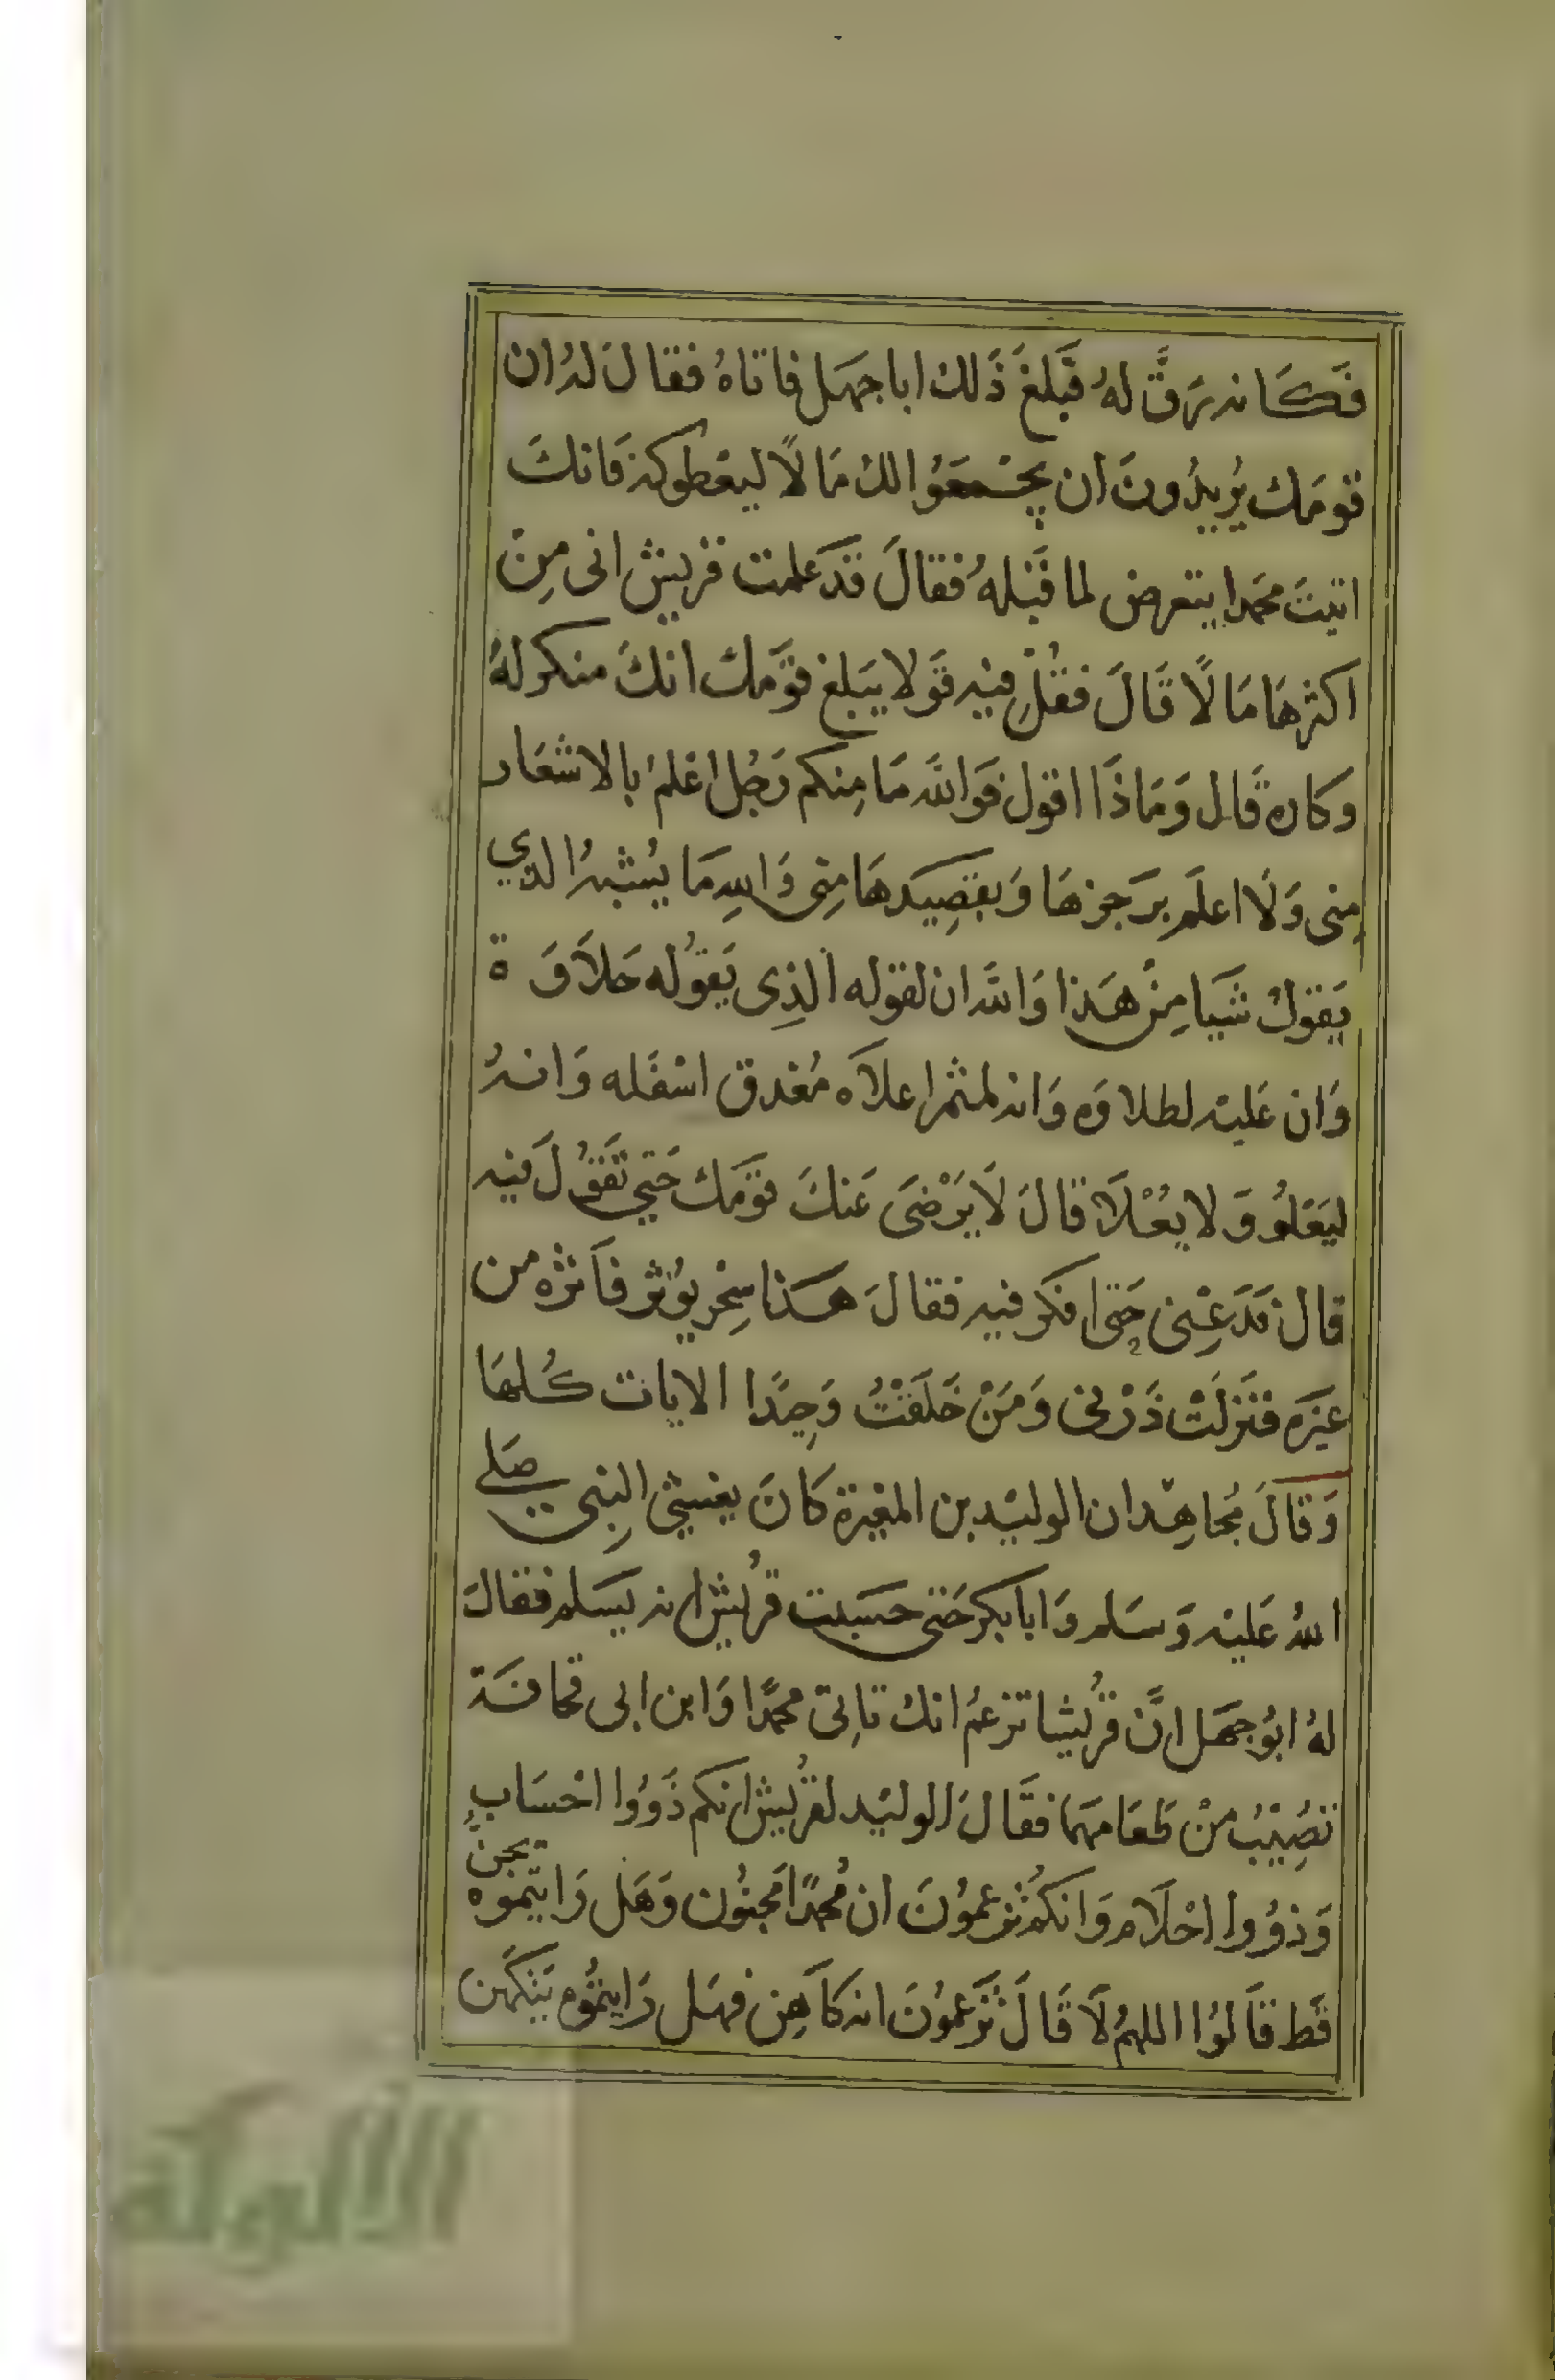 فَكَانه رَقَّ لهُ فَبَلغَ ذَلك ابا جهَل فاتاهُ فقالَ لهُ ان
قومَك يُريدُونَ ان يجْمعَوُا لكُ مَالًا ليعْطوكه فَانكَ
اتيتَ محمَدا يتعرض لما قَبْلهُ فقالَ قدَ علمت قريش انى مِنْ
اكثرهَا مَالًا قَالَ فقُلْ فيه قَولا يبَلغ قوَمك انكَ منكر لهُ
وكاره قَال وَمَاذَا اقول فوَاللهَ مَا مِنكم رَجُل اعْلمُ بالاشعَار
مِنى وَلَا اعلَم برَجزهَا وَبقصِيدهَا مِنِى وَاللهِ مَا يُشْبهُ الذي
يَقولُ شَيا مِنْ هَذا وَاللهَ ان لقوله الذِى يَقوُله حَلَاوَة
وَان عَليْه لطلاوَه وَانه لمثمر اعلَاه مُغدق اسْفَله وَانهُ
ليَعْلوُ وَلا يعْلَا قالَ لَا يَرْضىَ عَنكَ قوَمك حَتي تَقوُلَ فيه
قال فدَعْنى حَتى افكر فيه فقالَ هَذا سِحْر يوُثر فَاثره من
غيَره فنَزلَتْ ذَرْنى وَمَنْ خَلَقْتُ وَحِيدًا الايات كُلهَا
وَقالَ مُجاهِد ان الوليْد بن المغيرة كَانَ يغشي النِبى صَلي
اللهُ عَليْه وَسَلم وَابا بكر حَتى حسَبت قرُيش انه يسَلم فقالَ
لهُ ابوُ جهَل انَّ قرُيشا تزعمُ انك تاتى محمدًا وَابن ابى قحافَة
تصِيْبُ منْ طعَامهما فقَالَ الوليْد لقرُيش انكم ذَوُوا احْسَابٍ
وَذوُوا احْلَام وَانكمُ تزعموُنَ ان مُحمدًا مَجنوُن وَهَل رَايتموه يجن
قَط قَالوُا اللهمُ لَا قَالَ تَزعموُنَ انه كَاهِن فهَل رَايتموُه يَتكَهن
الألوكة